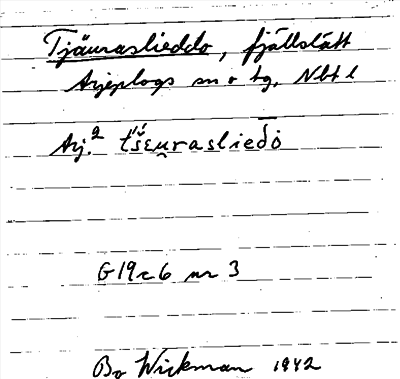 Tjäuraslieddo, fjällslätt
Arjeplogs sn o tg, Nbt l
Arj.² t́š́ɛu̯rasliēδ̄ò
G19c6 nr 3
Bo Wickman 1942